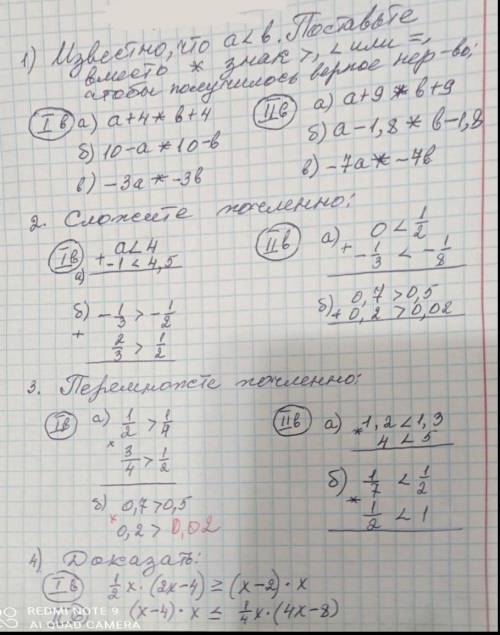 1) Известно, что a < b. Поставьте
вместо * знак >, < или =,
чтобы получилось верное нер-во:
I в а) a+4 * b+4
б) 10-a * 10-b
в) -3a * -3b
II в а) a+9 * b+9
б) a-1,8 * b-1,8
в) -7a * -7b
2. Сложите почленно:
I в а) + a < 4
-1 < 4,5
б) + -1/3 > -1/2
2/3 > 1/2
II в а) + 0 < 1/2
-1/3 < -1/8
б) 0,7 > 0,5
+ 0,2 > 0,02
3. Перемножте почленно:
I в а) 1/2 > 1/4
× 3/4 > 1/2
б) 0,7 > 0,5
× 0,2 > 0,02
II в а) * 1,2 < 1,3
4 < 5
б) 1/7 < 1/2
* 1/2 < 1
4) Доказать:
I в 1/2 x · (2x-4) ≥ (x-2) · x
(x-4) · x ≤ 1/4 x · (4x-8)
REDMI NOTE 9
AI QUAD CAMERA